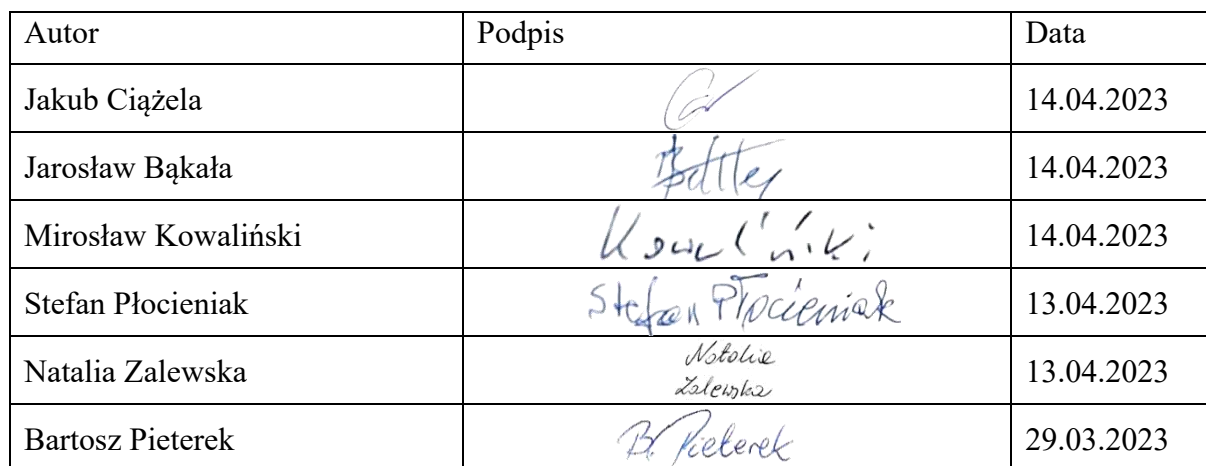 Autor Podpis Data
Jakub Ciążela 14.04.2023
Jarosław Bąkała 14.04.2023
Mirosław Kowaliński Kowaliński 14.04.2023
Stefan Płocieniak Stefan Płocieniak 13.04.2023
Natalia Zalewska Natalia Zalewska 13.04.2023
Bartosz Pieterek B. Pieterek 29.03.2023